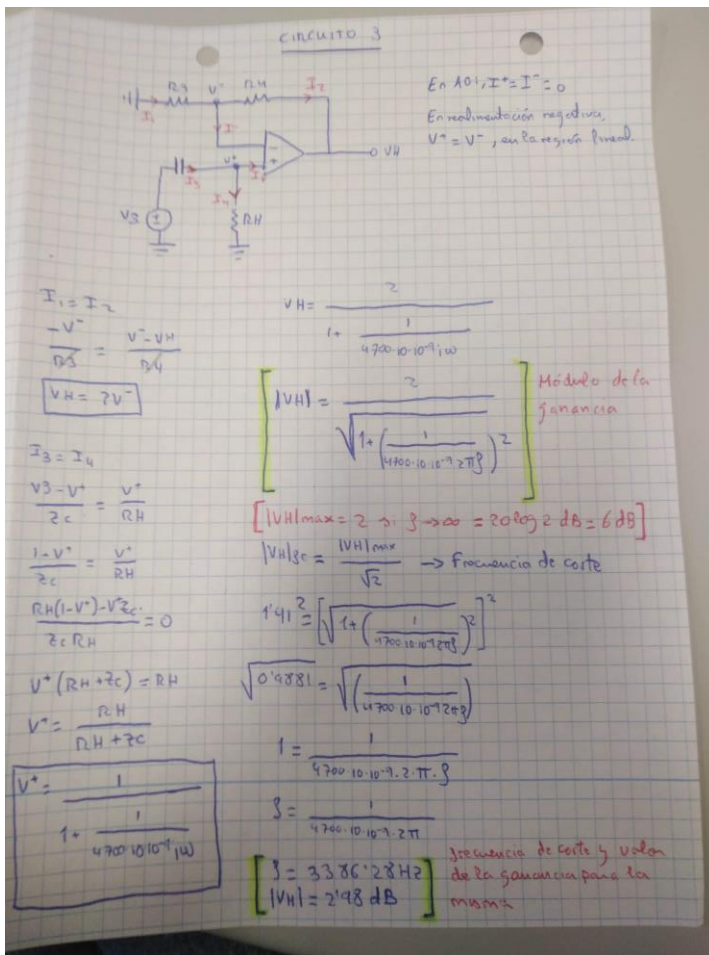 CIRCUITO 3
R3
V⁻
RH
I2
I1
I⁻
V⁺
I3
I⁺
I4
V3
RH
VH
En AOI, I⁺=I⁻=0
En realimentación negativa,
V⁺=V⁻, en la región lineal.
I1=I2
-V⁻/R3 = (V⁻-VH)/R4
VH=2V⁻
I3=I4
(V3-V⁺)/Zc = V⁺/RH
(1-V⁺)/Zc = V⁺/RH
(RH(1-V⁺)-V⁺Zc)/(Zc RH) = 0
V⁺(RH+Zc)=RH
V⁺= RH/(RH+Zc)
V⁺= 1/(1+ 1/(4700·10·10⁻⁹jω))
VH= 2/(1+ 1/(4700·10·10⁻⁹jω))
|VH| = 2/√(1+(1/(4700·10·10⁻⁹2πf))²)
Módulo de la
ganancia
[|VH|max=2 si f→∞ = 20log2 dB=6dB]
|VH|fc = |VH|max/√2 → Frecuencia de corte
1'41² = [√(1+(1/(4700·10·10⁻⁹2πf))²)]²
√0'9881 = √(1/(4700·10·10⁻⁹2πf))
1 = 1/(4700·10·10⁻⁹·2·π·f)
f = 1/(4700·10·10⁻⁹·2π)
f = 3386'28Hz
|VH|=2'98 dB
frecuencia de corte y valor
de la ganancia para la
misma